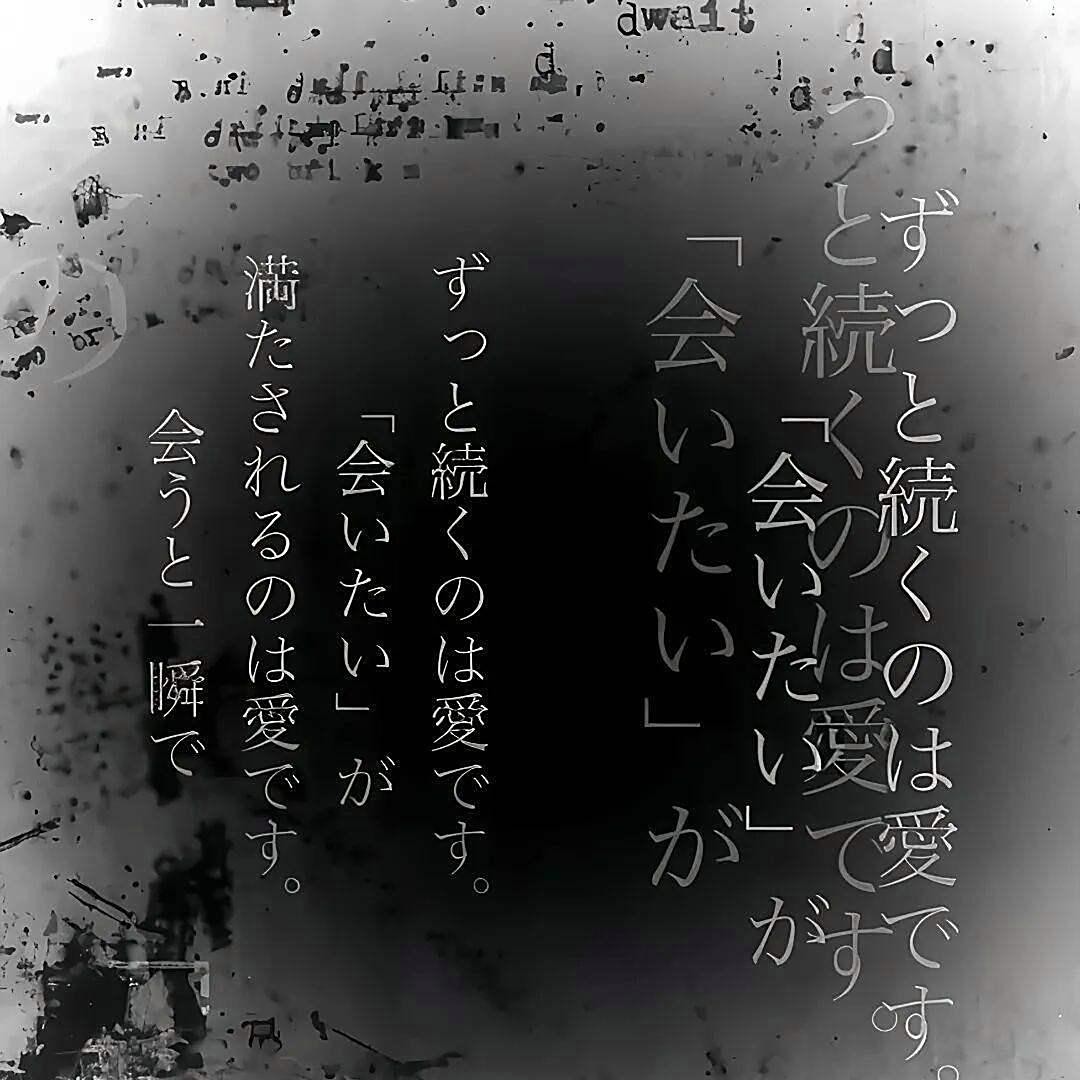 await
ずっと続くのは愛です。
っと続くのは愛です。
「会いたい」が
「会いたい」が
ずっと続くのは愛です。
「会いたい」が
満たされるのは愛です。
会うと一瞬で
の